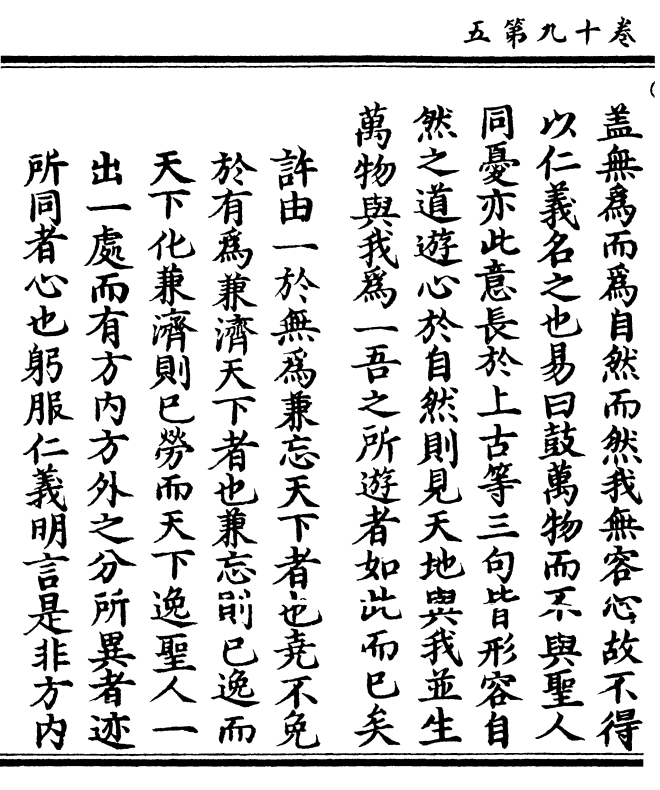 五第九十卷
盖無爲而爲自然而然我無容心故不得
以仁義名之也易曰鼓萬物而不與聖人
同憂亦此意長於上古等三句皆形容自
然之道遊心於自然則見天地與我並生
萬物與我爲一吾之所遊者如此而已矣
許由一於無爲兼忘天下者也堯不免
於有爲兼濟天下者也兼忘則已逸而
天下化兼濟則已勞而天下逸聖人一
出一處而有方内方外之分所異者迹
所同者心也躬服仁義明言是非方内